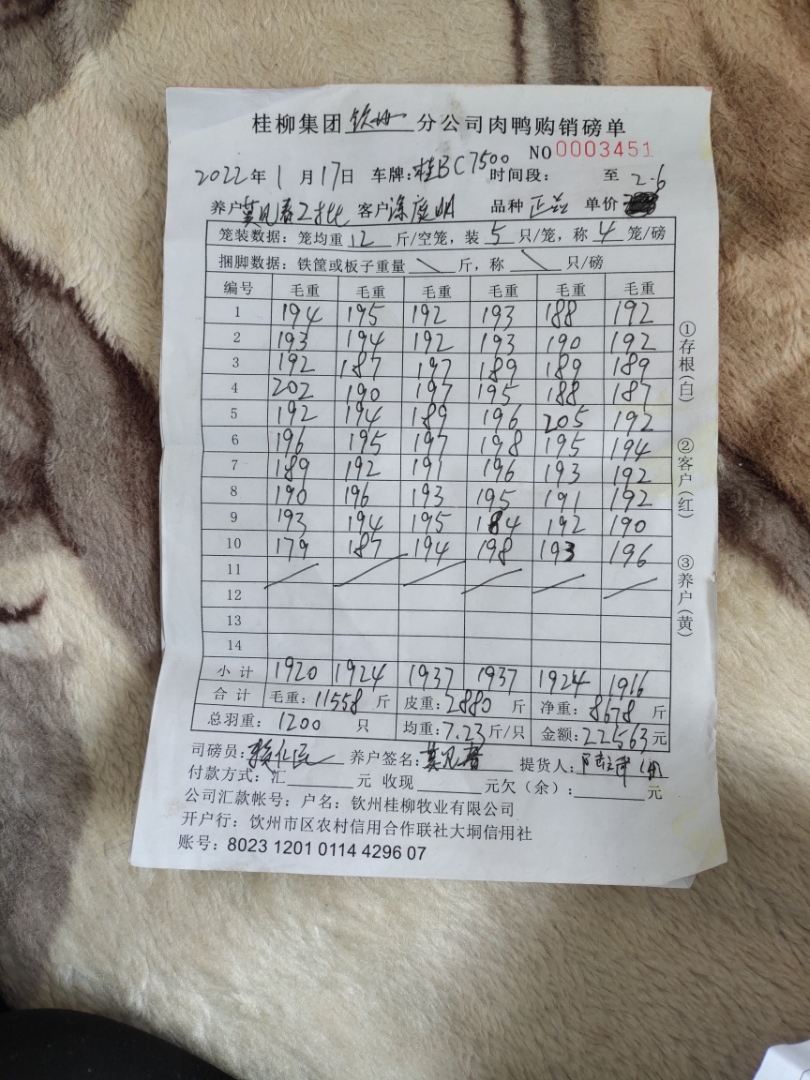 桂柳集团 钦州 分公司肉鸭购销磅单
NO 0003451
2022年 1 月 17日 车牌:桂BC7500 时间段: 至 2.6
养户 客户 品种 正 单价
笼装数据：笼均重 12 斤/空笼，装 5 只/笼，称 4 笼/磅
捆脚数据：铁筐或板子重量 \ 斤，称 \ 只/磅
编号 毛重 毛重 毛重 毛重 毛重 毛重
1 194 195 192 193 188 192
2 193 194 192 193 190 192
3 192 187 197 189 189 189
4 202 190 197 195 188 187
5 192 194 189 196 205 192
6 196 195 197 198 195 194
7 189 192 191 196 193 192
8 190 196 193 195 191 192
9 193 194 195 184 192 190
10 179 187 194 198 193 196
11
12
13
14
小计 1920 1924 1937 1937 1924 1916
合计 毛重：11558 斤 皮重：2880 斤 净重：8678 斤
总羽重： 1200 只 均重：7.23斤/只 金额：22563元
司磅员: 养户签名: 提货人:
付款方式：汇 元 收现 元欠（余）: 元
公司汇款帐号：户名：钦州桂柳牧业有限公司
开户行：钦州市区农村信用合作联社大垌信用社
账号：8023 1201 0114 4296 07
①存根(白)
②客户(红)
③养户(黄)